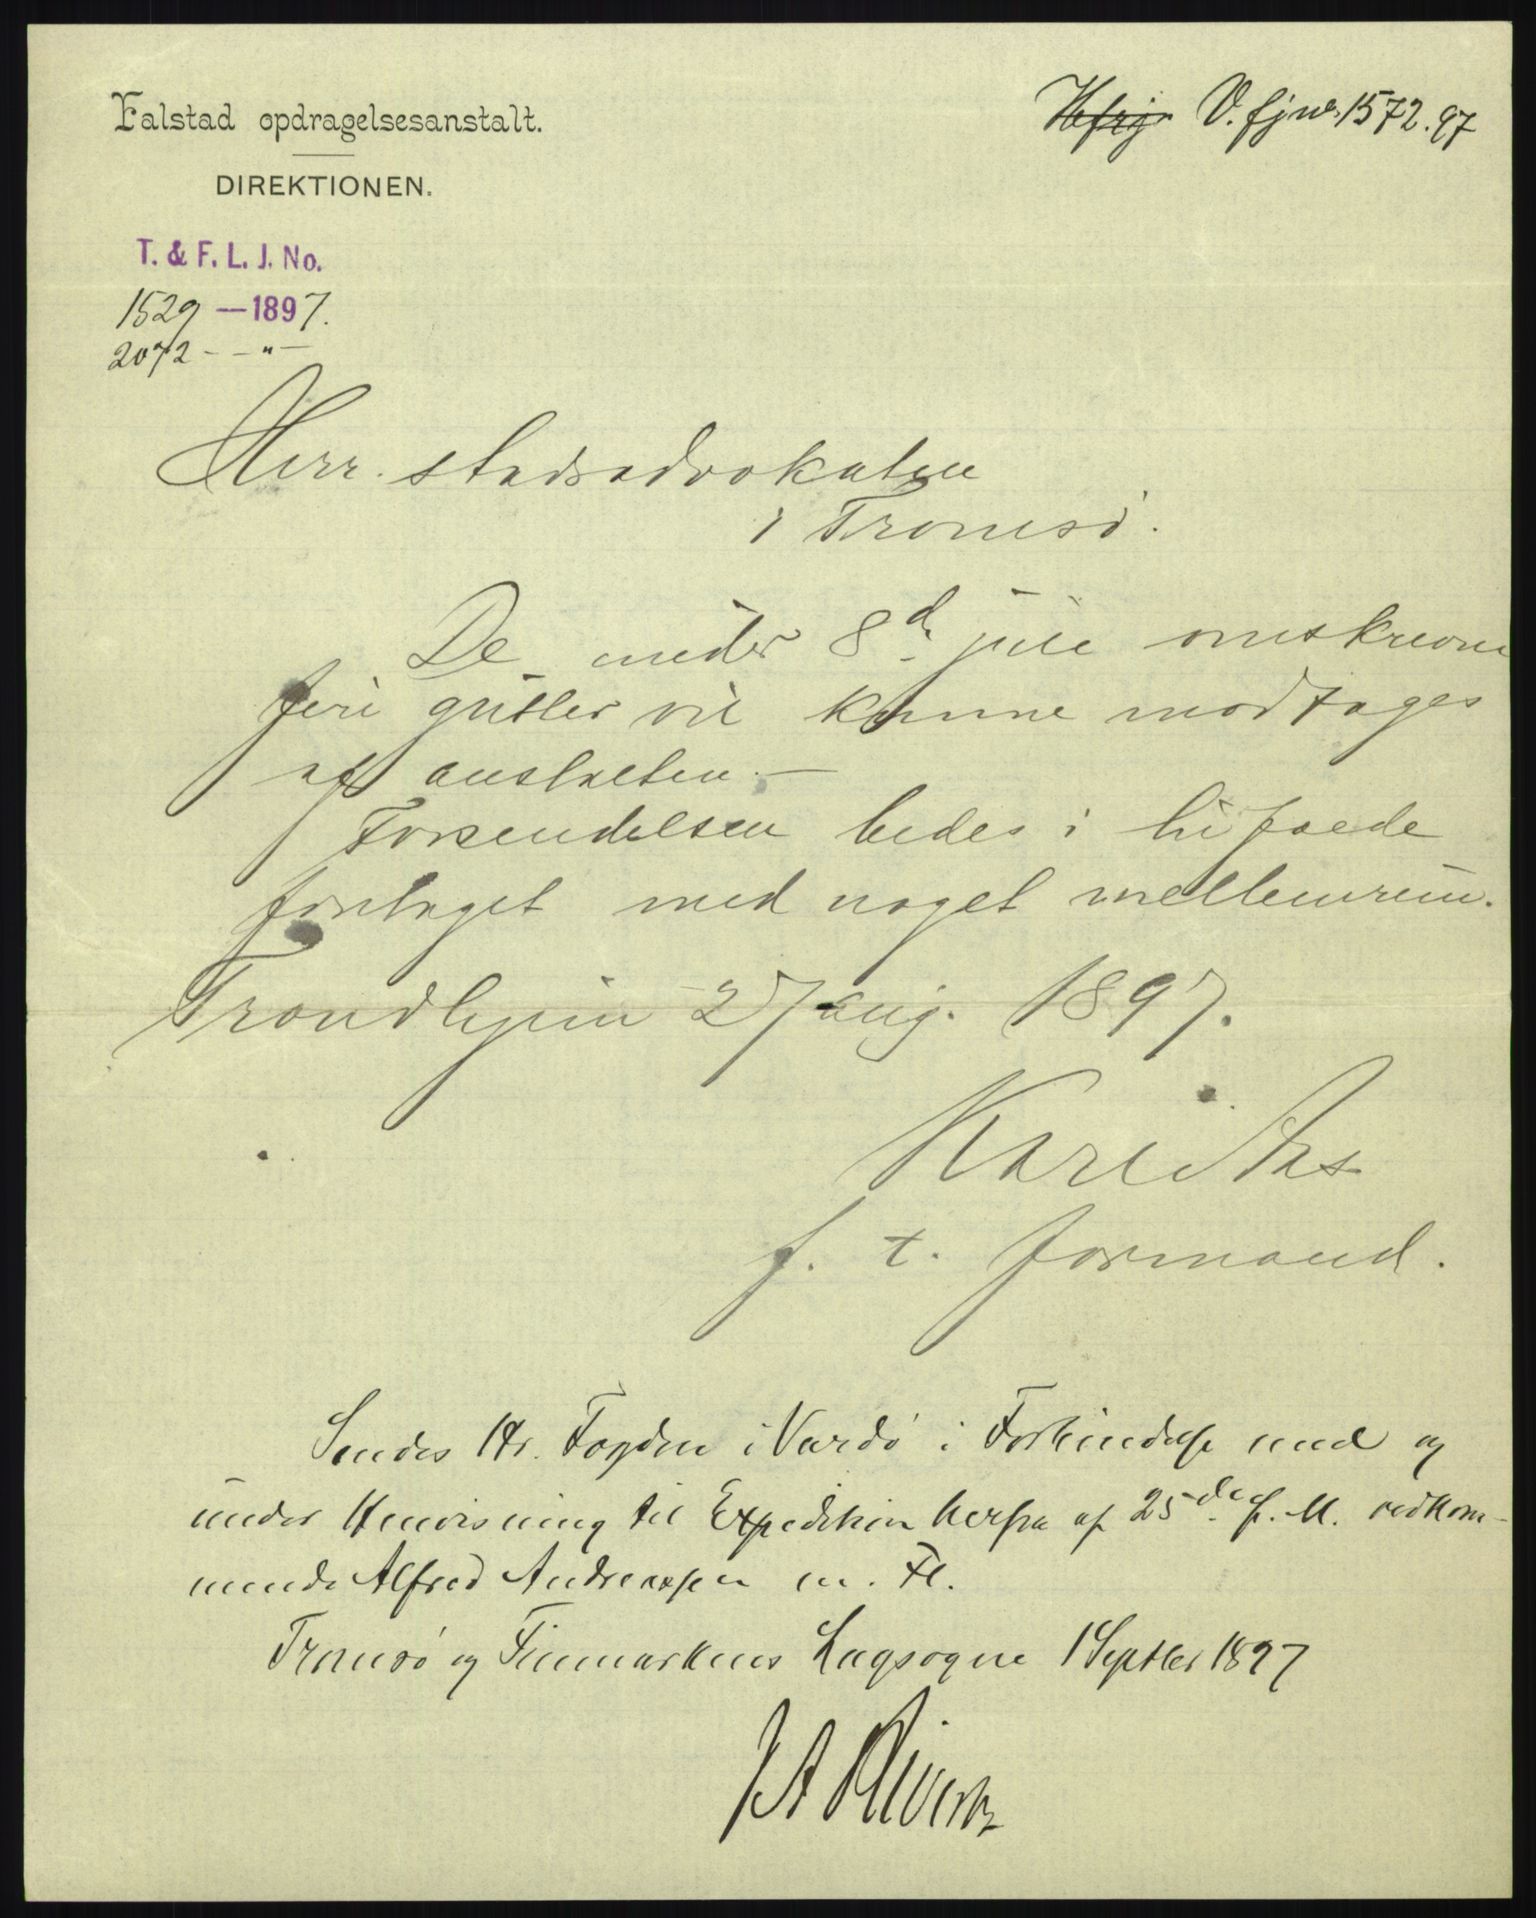 Falstad opdragelsesanstalt.
DIREKTIONEN.
V. fj no. 1572.97
T. & F. L. J. No.
1529 — 1897.
2072 - — " —
Herr stadsadvokaten
i Tromsø.
De under 8de juli omskrevne
fire gutter vil kunne modtages
af anstalten. —
Forsendelsen bedes i tilfælde
foretaget med noget mellemrum.
Trondhjem 27 aug. 1897.
Karl Aas
f. t. formand.
Sendes Hr. Fogden i Vardø i Forbindelse med og
under Henvisning til Expedition herfra af 25de f. M. vedkom-
mende Alfred Andreassen m. Fl.
Tromsø og Finmarkens Lagsogne 1 Septbr 1897